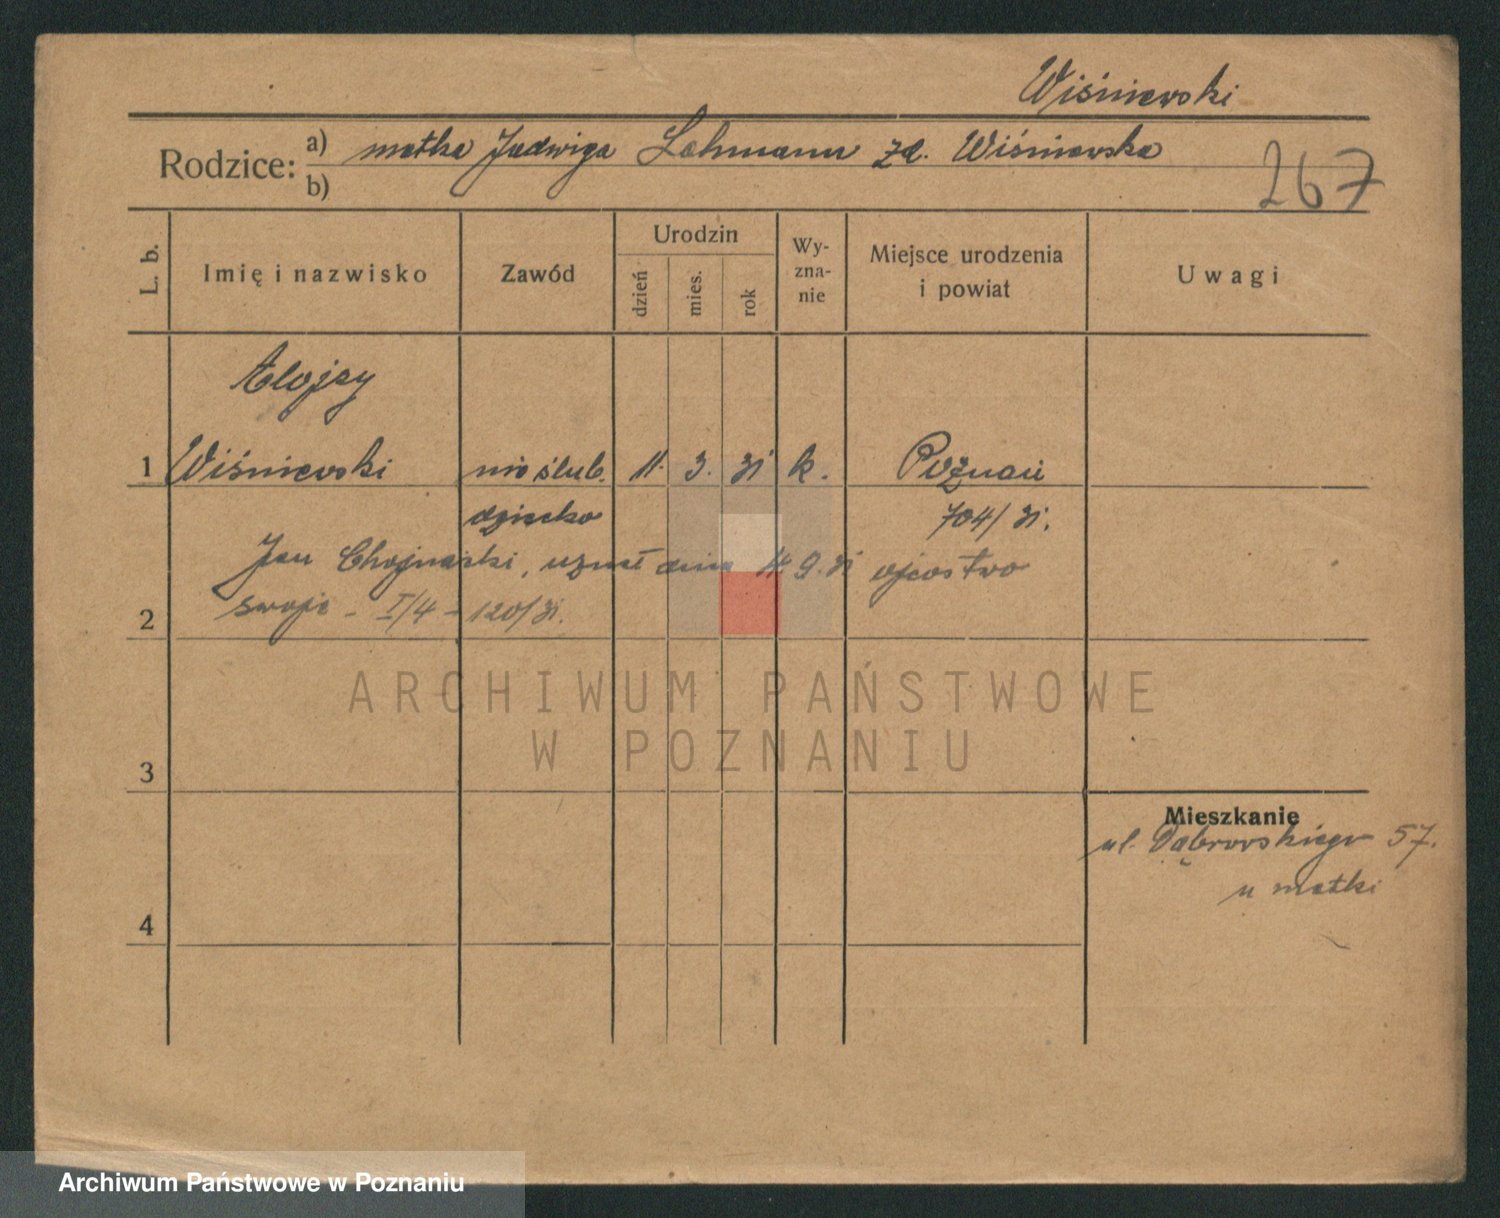 Wiśniewski
Rodzice: a) matka Jadwiga Lehmann zd. Wiśniewska
b)
267
L. b. Imię i nazwisko Zawód Urodzin dzień mies. rok Wy-zna-nie Miejsce urodzenia i powiat Uwagi
Alojzy
1 Wiśniewski nieślub. 11. 3. 31 k. Poznań
dziecko 704/31.
Jan Chojnacki, uznał dnia 9. 31 ojcostwo
2 swoje - I/4 - 120/31.
ARCHIWUM PAŃSTWOWE
W POZNANIU
3
Mieszkanie
ul. Dąbrowskiego 57.
u matki
4
Archiwum Państwowe w Poznaniu